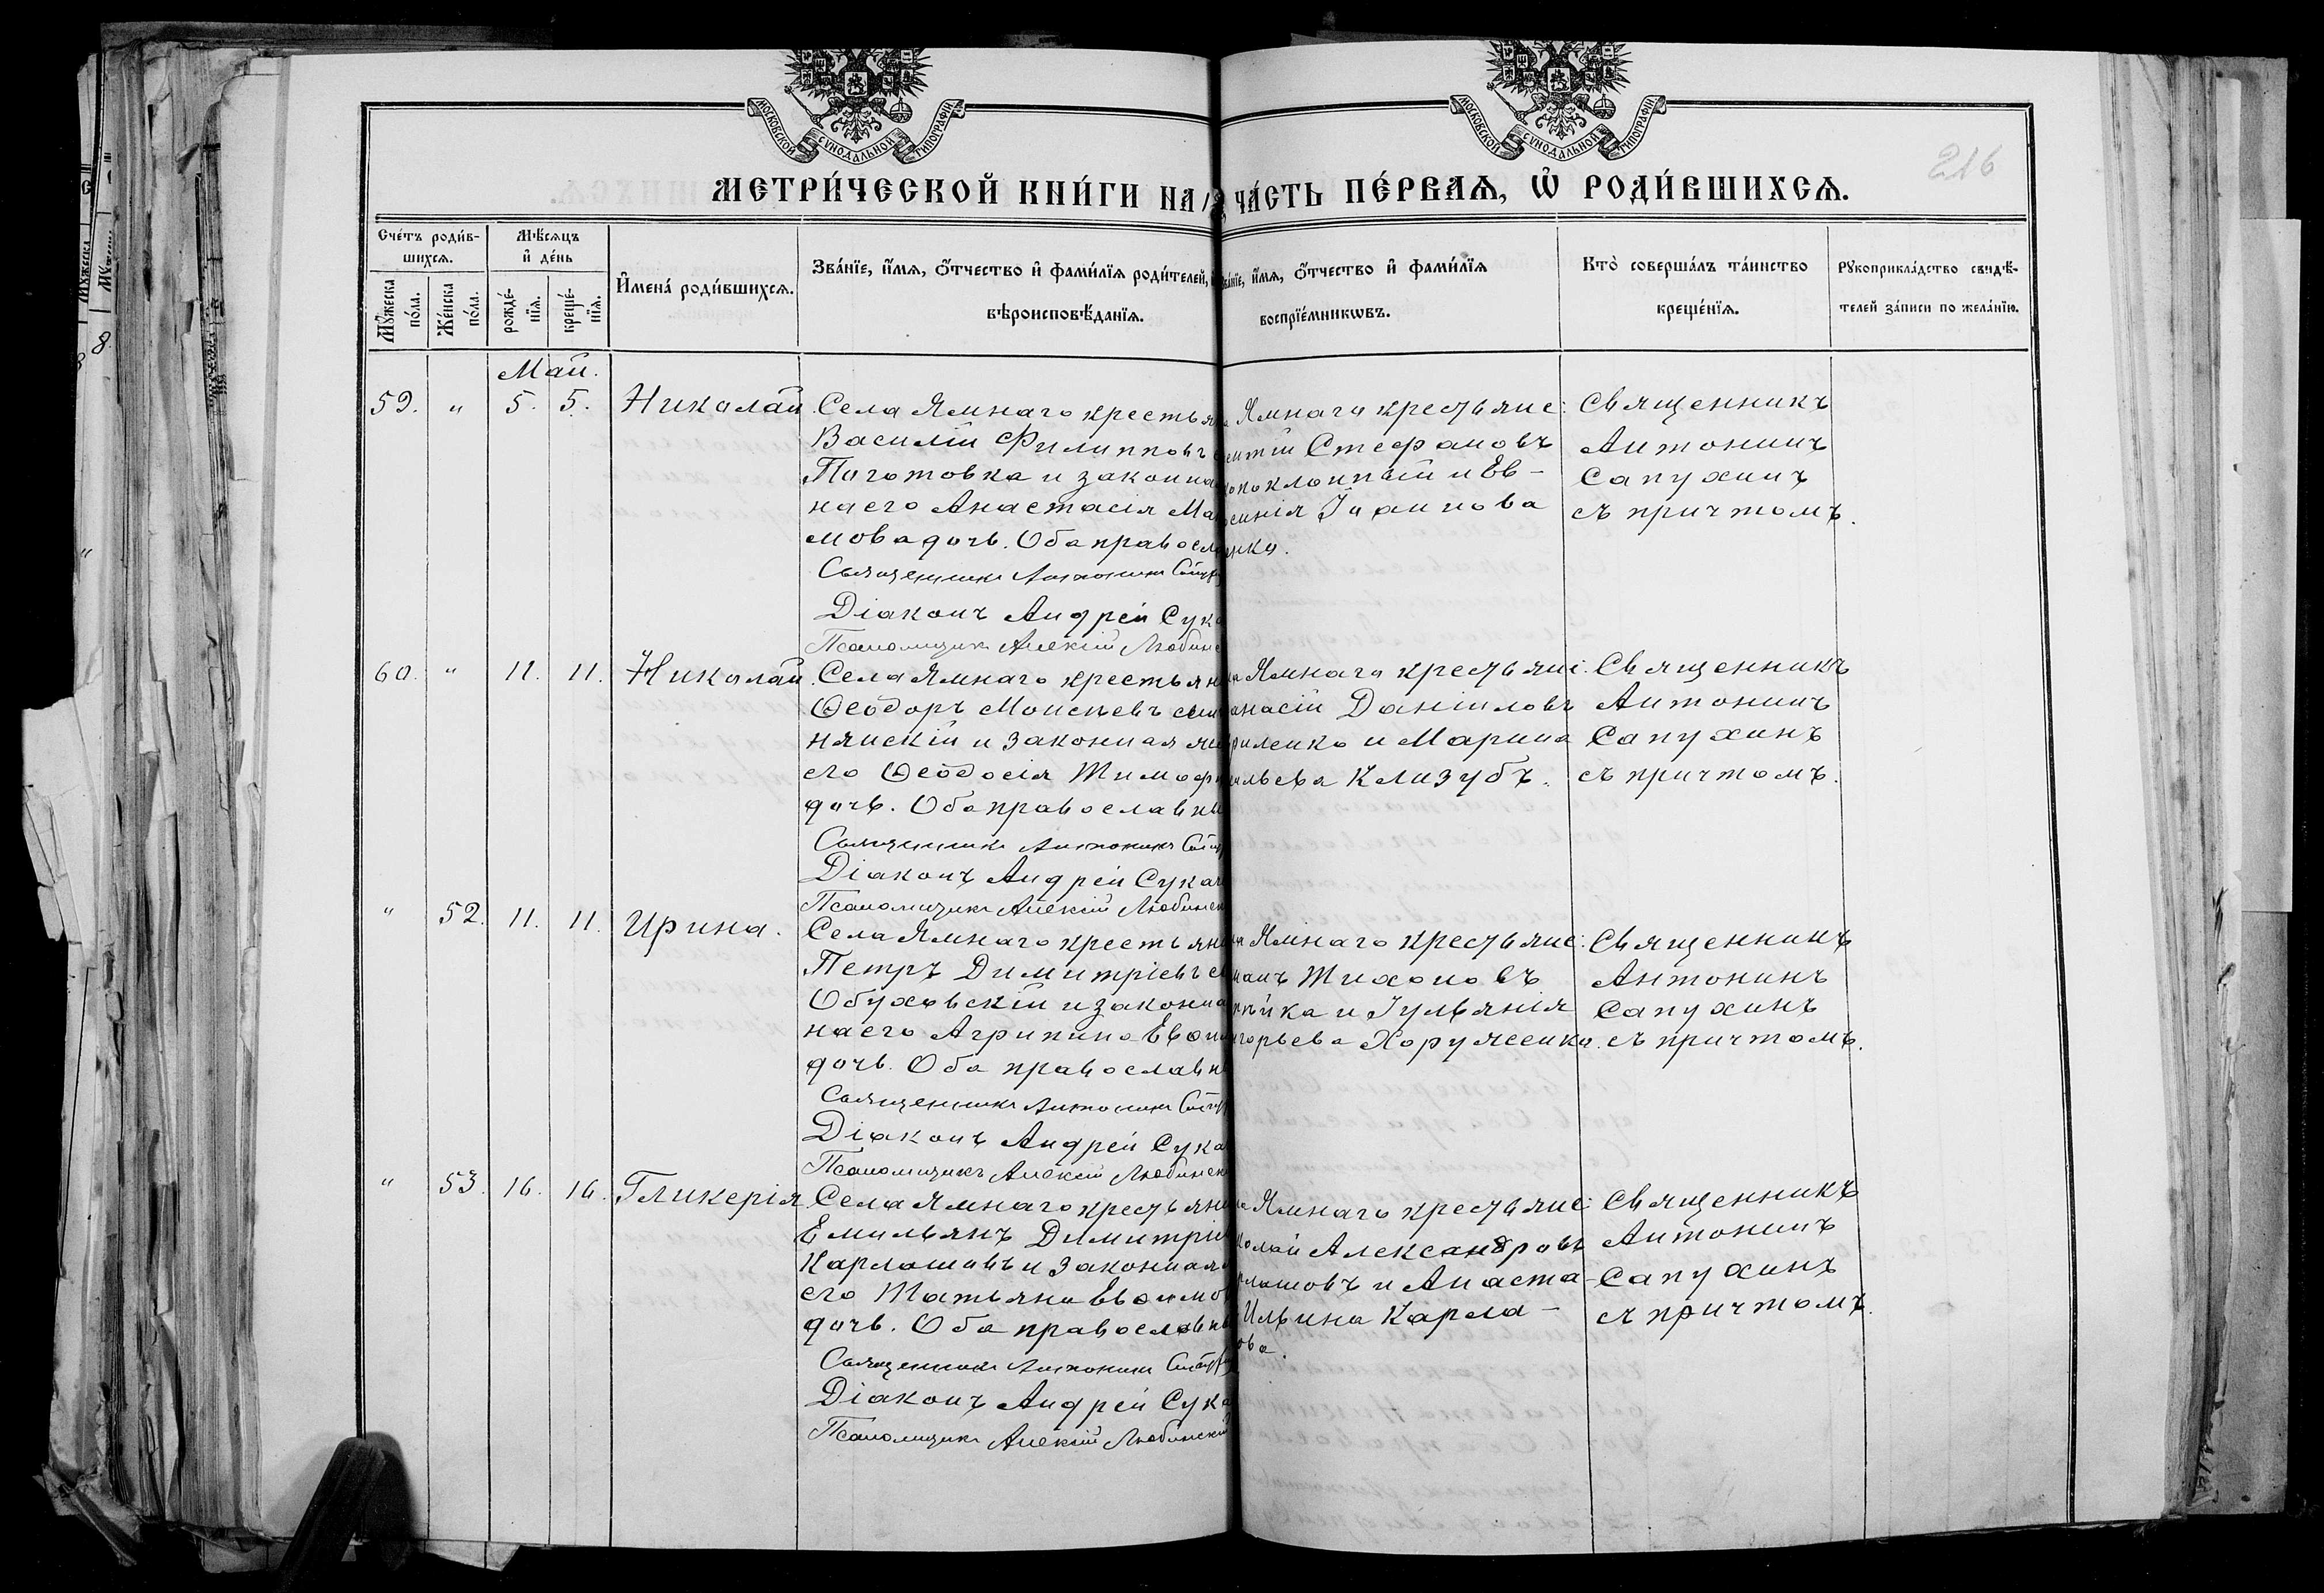 МОСКОВСКОЙ СѴНОДАЛЬНОЙ ТИПОГРАФІИ
МОСКОВСКОЙ СѴНОДАЛЬНОЙ ТИПОГРАФІИ
216
МЕТРИ́ЧЕСКОЙ КНИ́ГИ НА
ЧА́СТЬ ПЕ́РВАѦ, Ѽ РОДИ́ВШИХСѦ.
Сче́тъ роди́в-
шихсѧ.
Мѣ́сѧцъ
и҆ де́нь
Мꙋ́жеска по́ла.
Же́нска по́ла.
рожде́-
нїѧ.
креще́-
нїѧ.
И҆мена́ роди́вшихсѧ.
Зва́нїе, и҆́мѧ, ѻ҆́тчество и҆ фами́лїѧ роди́телей,
вѣроисповѣ́данїѧ.
и҆́мѧ, ѻ҆́тчество и҆ фами́лїѧ
воспрїе́мникѡвъ.
Кто̀ соверша́лъ та́инство
креще́нїѧ.
Рꙋкоприкла́дство свидѣ́-
телей за́писи по жела́нїю.
Май.
59. " 5. 5. Николай.
Села Ямнаго крестья
Василій Филипповъ
Поготовка и закон
на его Анастасія
мова дочь. Оба
Священникъ Антонинъ
Діаконъ Андрей
Псаломщикъ Алексій
Ямнаго крестьяне:
Стефановъ
и Ев-
Іоаннова
Священникъ
Антонинъ
Сапухинъ
съ причтомъ.
60. " 11. 11. Николай.
Села Ямнаго крестьян
Ѳеодоръ Моисеевъ
и законная
его Ѳеодосія
дочь. Оба православн
Священникъ Антонинъ
Діаконъ Андрей
Псаломщикъ Алексій
Ямнаго крестьяне:
Даніиловъ
и Марина
Клизубъ.
Священникъ
Антонинъ
Сапухинъ
съ причтомъ.
" 52. 11. 11. Ирина.
Села Ямнаго крестьян
Петръ Димитріевъ
Обуховскій и закон
на его Агрипина
дочь. Оба православн
Священникъ Антонинъ
Діаконъ Андрей
Псаломщикъ Алексій
Ямнаго крестьяне:
Тихоновъ
и Іульянія
Хоруженко.
Священникъ
Антонинъ
Сапухинъ
съ причтомъ.
" 53. 16. 16. Гликерія
Села Ямнаго крестьян
Емильянъ
Карлашовъ и законная
его Татьяна
дочь. Оба православн
Священникъ Антонинъ
Діаконъ Андрей
Псаломщикъ Алексій
Ямнаго крестьяне:
Александровъ
и Анаста-
Ильина Карла-
Священникъ
Антонинъ
Сапухинъ
съ причтомъ.